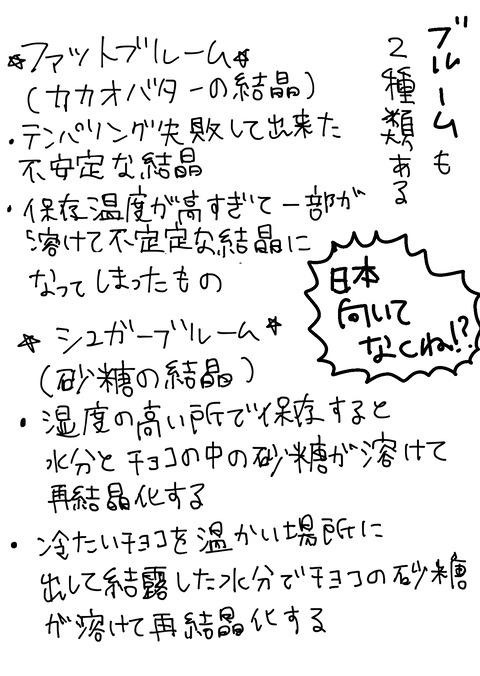 ブルームも
2種類ある
☆ファットブルーム☆
(カカオバターの結晶)
・テンパリング失敗して出来た
不安定な結晶
・保存温度が高すぎて一部が
溶けて不定定な結晶に
なってしまったもの
☆シュガーブルーム☆
(砂糖の結晶)
・湿度の高い所で保存すると
水分とチョコの中の砂糖が溶けて
再結晶化する
・冷たいチョコを温かい場所に
出して結露した水分でチョコの砂糖
が溶けて再結晶化する
日本
向いて
なくね!?